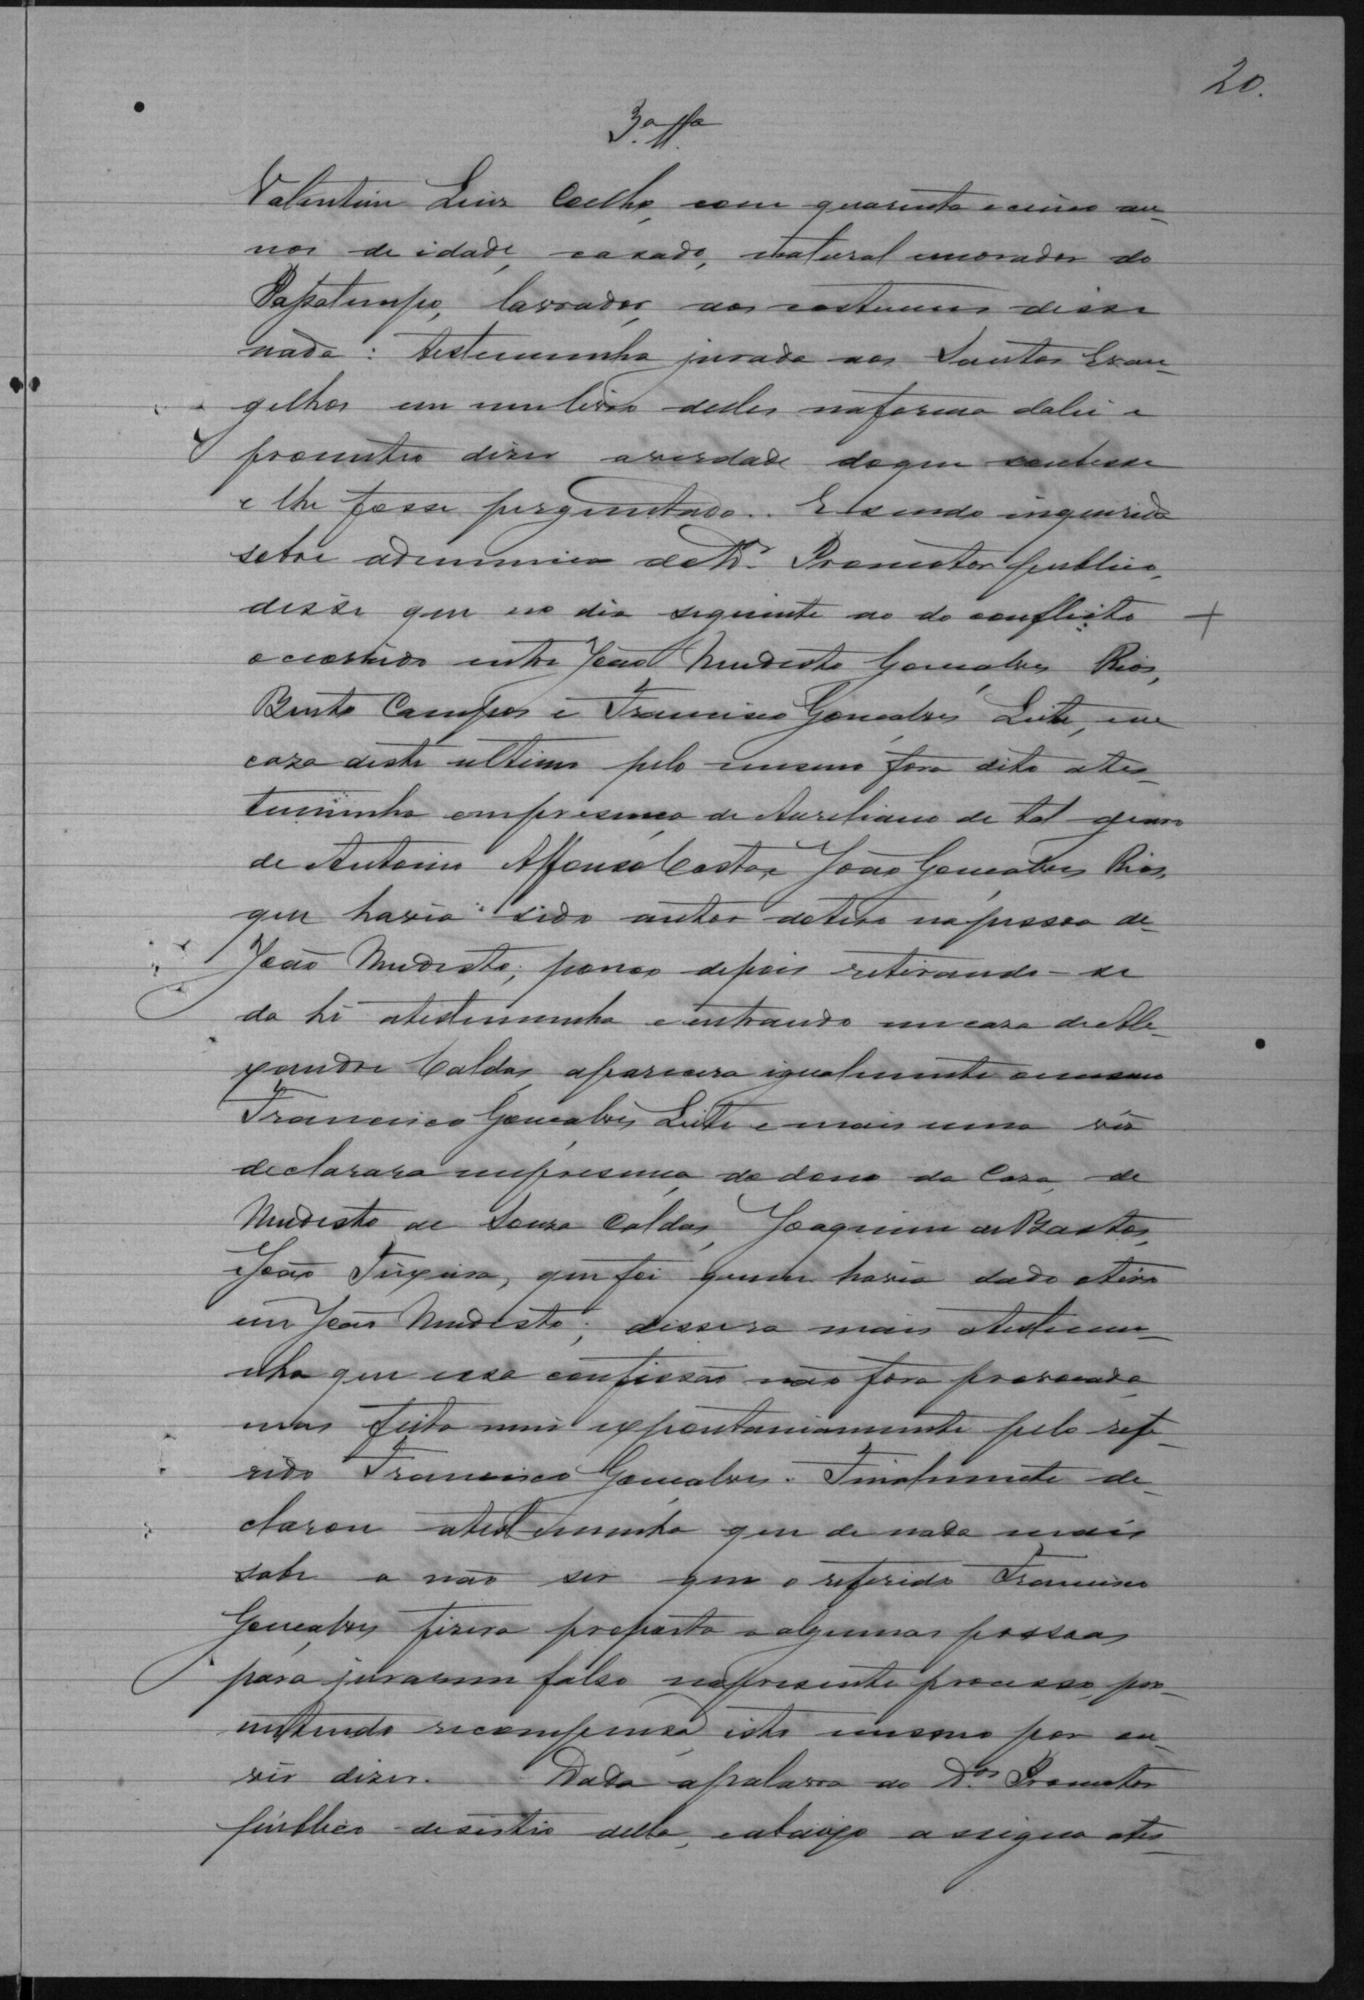 20.
3.ª tt.ª
Valentim Luiz Coelho, com quarenta e cinco an-
nos de idade, casado, natural e morador do
Passatempo, lavrador, aos costumes disse
nada: testemunha jurada aos Santos Evan-
gelhos em um livro delles na forma da lei e
prometteo dizer a verdade do que soubesse
e lhe fosse perguntado. E sendo inquerida
sobre a denuncia do D.r Promotor publico,
disse que no dia seguinte ao do conflicto
occorrido entre João Modesto Gonçalves Rios,
Bento Campos e Francisco Gonçalves Leite, em
caza deste ultimo pelo mesmo fora dito a tes-
temunha em presença de Aureliano de tal genro
de Antonio Affonso Costa, e João Gonçalves Rios,
que havia sido autor do tiro na pessoa de
João Modesto; pouco depois retirando-se
da hi a testemunha e entrando em casa de Ale-
xandre Caldas, aparecera igualmente o mesmo
Francisco Gonçalves Leite e mais uma vez
declarara em presença do dono da Casa, de
Modesto de Souza Caldas, Joaquim de Bastos,
e João Teixeira, que foi quem havia dado o tiro
em João Modesto; dissera mais a testemu-
nha que essa confissão não fora provocada
mas feita mui expontaniamente pelo refe-
rido Francisco Gonçalves. Finalmente de-
clarou a testemunha que de nada mais
sabe a não ser que o referido Francisco
Gonçalves fizera proposta a algumas pessoas
para jurarem falso no presente processo, pro-
mettendo recompensa, isto mesmo por ou-
vir dizer. Dada a palavra ao D.or Promotor
publico desistio della, e abaixo assigna a tes-